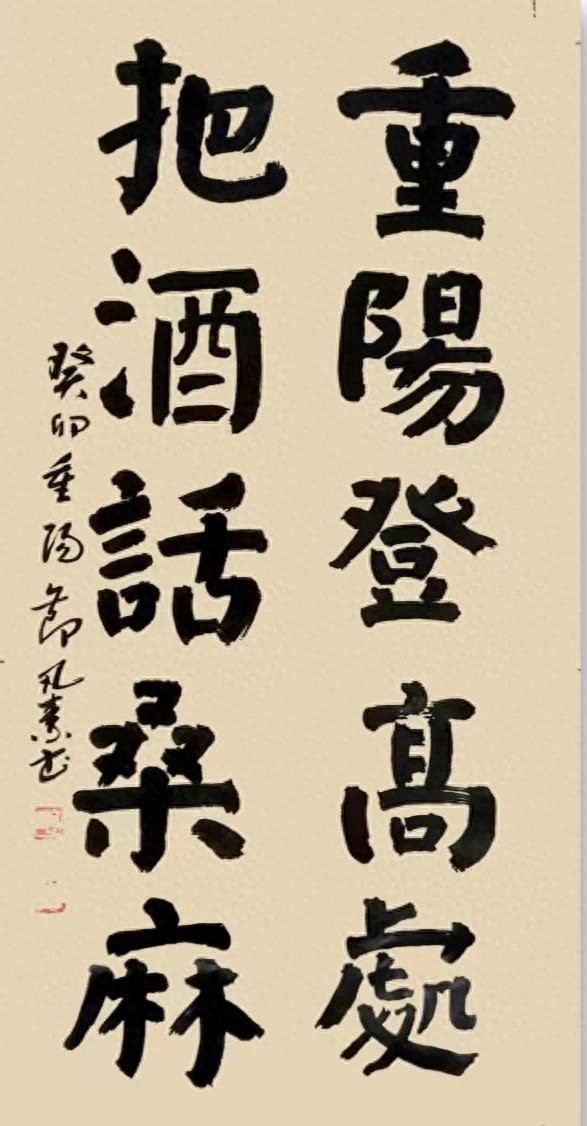 重陽登高處
把酒話桑麻
癸卯重陽節凡素书